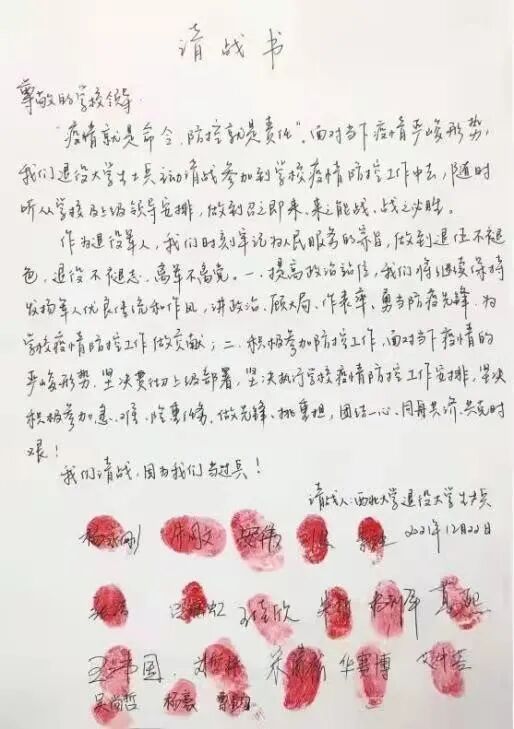 请战书
尊敬的学校领导:
"疫情就是命令,防控就是责任"。面对当下疫情严峻形势,
我们退役大学生士兵主动请战参加到学校疫情防控工作中去,随时
听从学校及上级领导安排,做到召之即来、来之能战、战之必胜。
作为退役军人,我们时刻牢记为人民服务的宗旨,做到退伍不褪
色,退役不褪志、离军不离党。一、提高政治站位,我们将继续保持
发扬军人优良传统和作风,讲政治、顾大局、作表率、勇当防疫先锋,为
学校疫情防控工作做贡献;二、积极参加防控工作,面对当下疫情的
严峻形势,坚决贯彻上级部署,坚决执行学校疫情防控工作安排,坚决
积极参加急、难、险、重任务,做先锋、挑重担,团结一心、同舟共济、共克时
艰!
我们请战,因为我们当过兵!
请战人:西北大学退役大学生士兵
2021年12月22日
华赛博
吴尚哲 杨豪